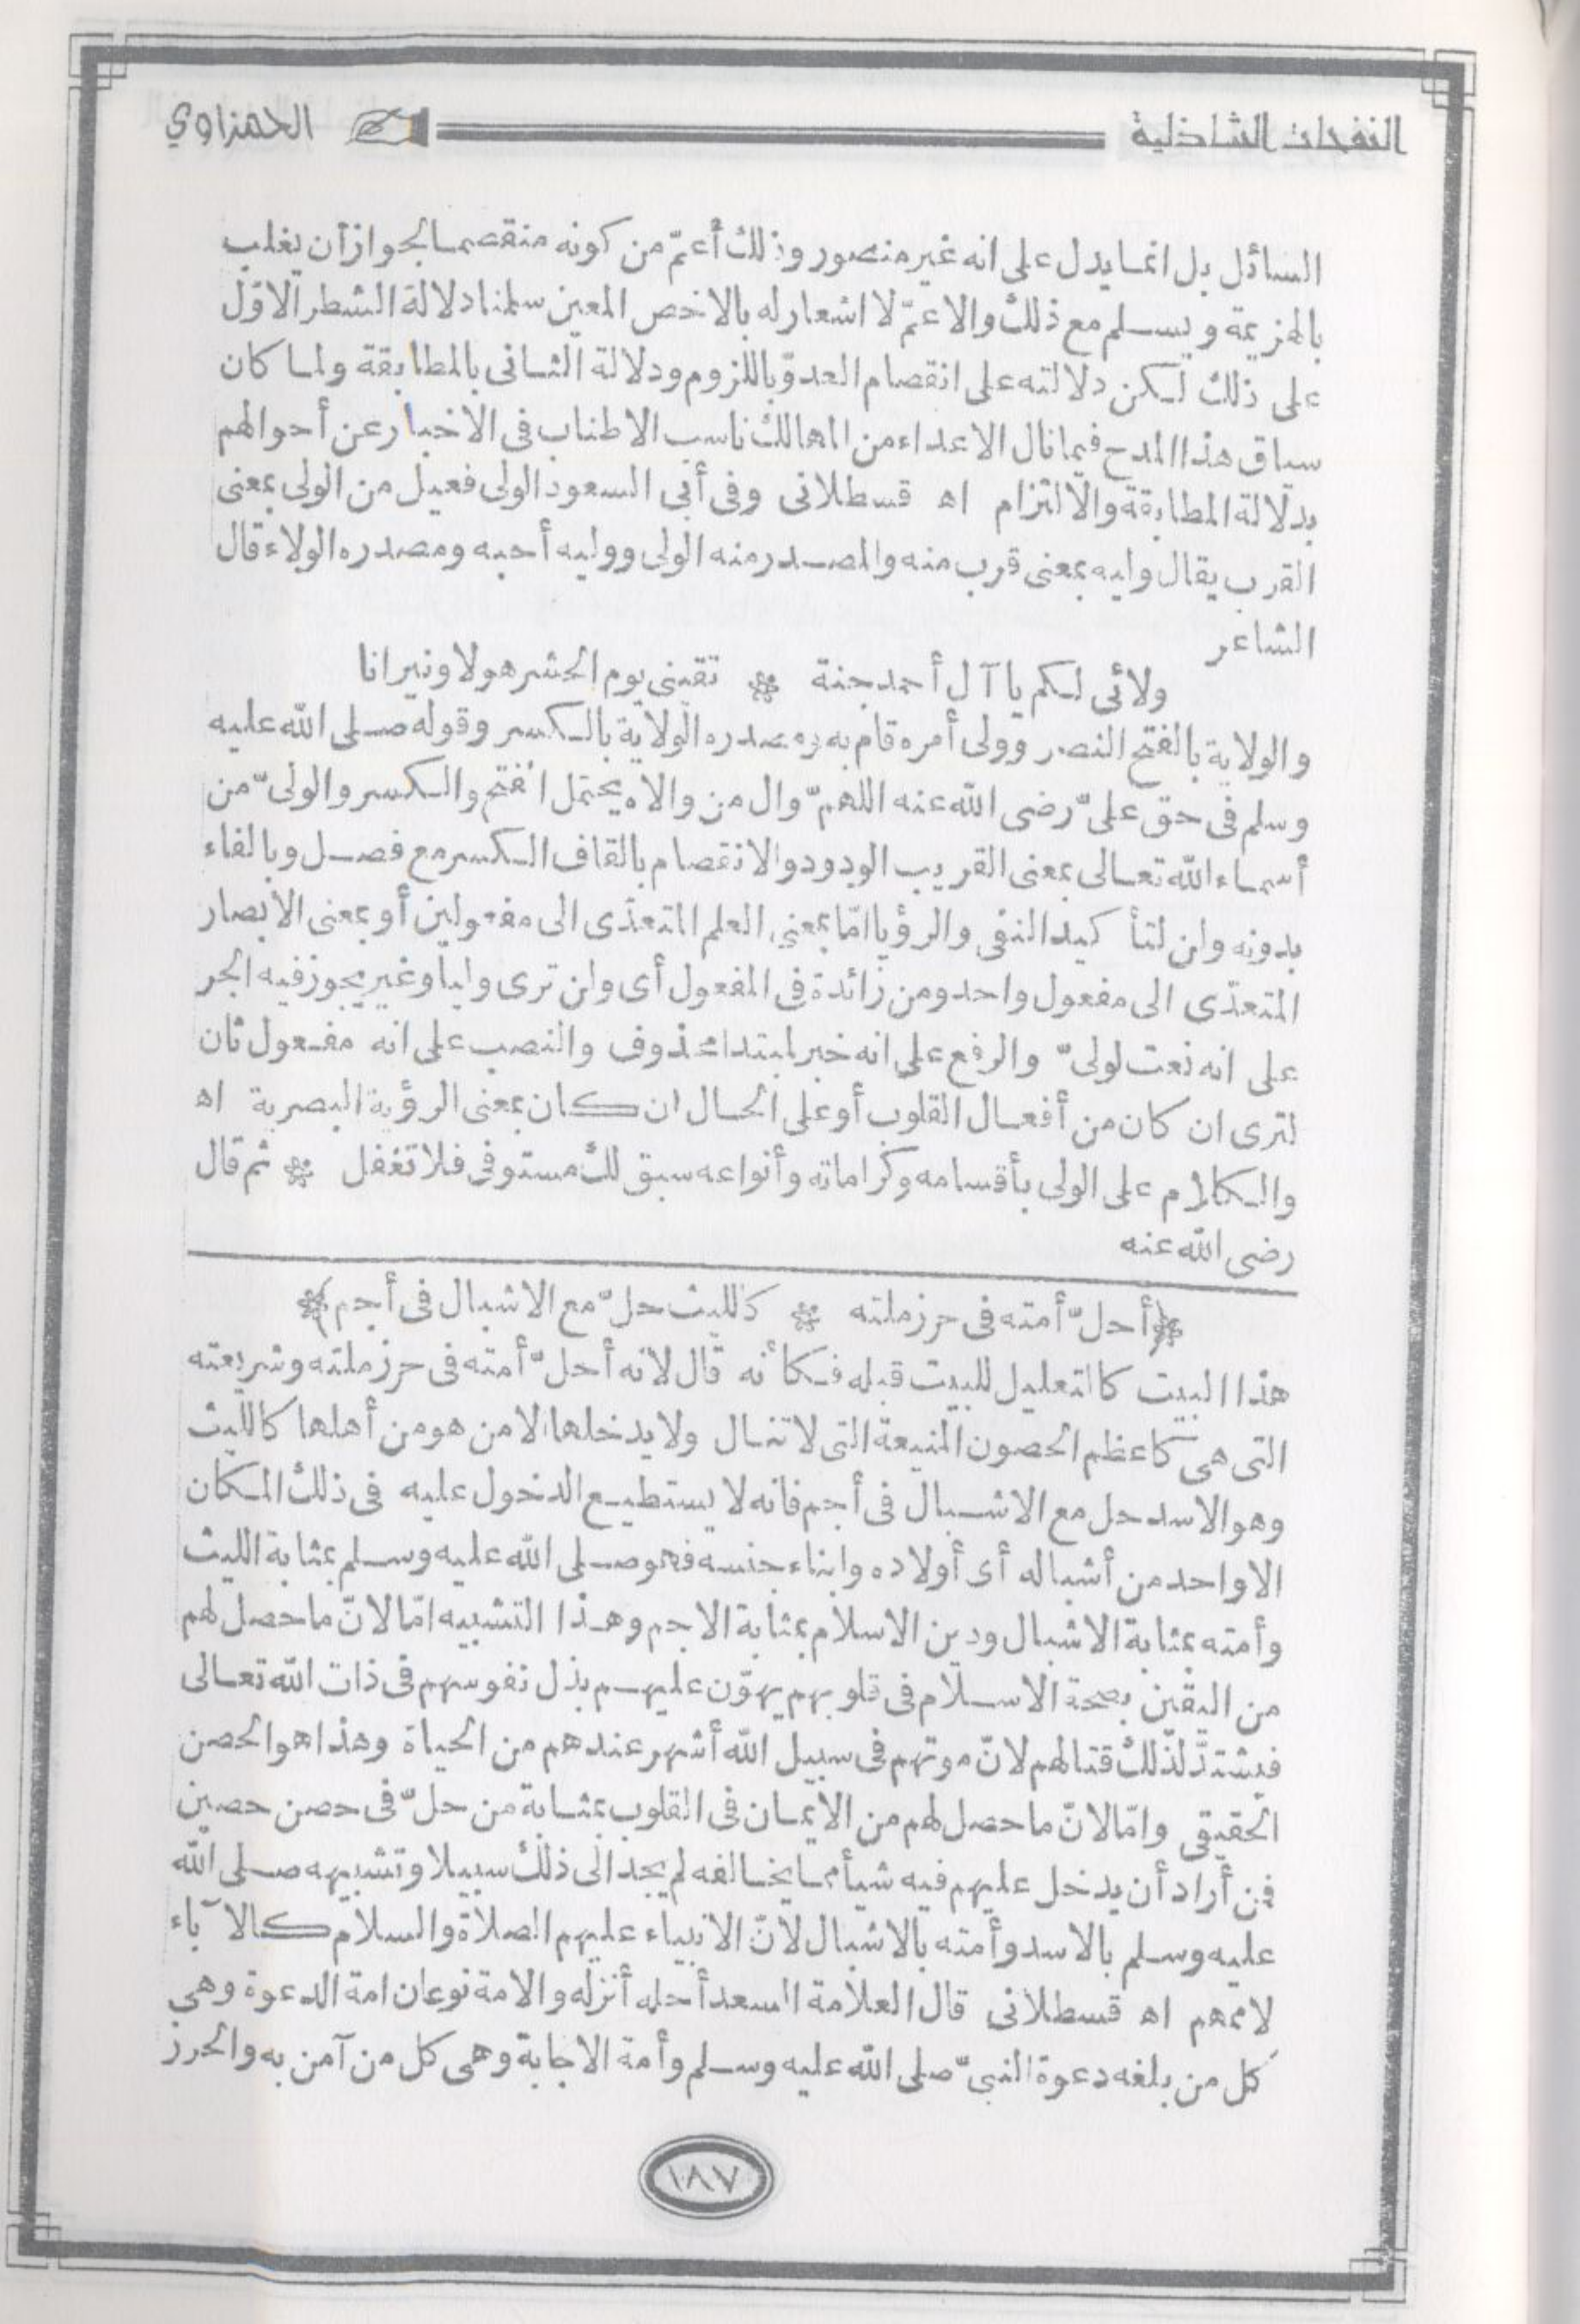 النفحات الشاذلية
الحمزاوي
السائل بل انما يدل على انه غير منصور وذلك أعمّ من كونه منقصما لجواز أن يغلب
بالهزيمة ويسلم مع ذلك والاعمّ لا اشعار له بالاخص المعين سلمنا دلالة الشطر الاوّل
على ذلك لكن دلالته على انقصام العدوّ باللزوم ودلالة الثانى بالمطابقة ولما كان
سياق هذا المدح فيما نال الاعداء من المهالك ناسب الاطناب فى الاخبار عن أحوالهم
بدلالة المطابقة والالتزام اه قسطلانى وفى أبى السعود الولى فعيل من الولى بمعنى
القرب يقال وليه بمعنى قرب منه والمصدر منه الولى ووليه أحبه ومصدره الولاء قال
الشاعر
ولائى لكم يا آل أحمد جنة ❋ تقينى يوم الحشر هولا ونيرانا
والولاية بالفتح النصر وولى أمره قام به ومصدره الولاية بالكسر وقوله صلى الله عليه
وسلم فى حق علىّ رضى الله عنه اللهمّ وال من والاه يحتمل الفتح والكسر والولىّ من
أسماء الله تعالى بمعنى القريب الودود والانقصام بالقاف الكسر مع فصل وبالفاء
بدونه ولن لتأكيد النفى والرؤيا امّا بمعنى العلم المتعدّى الى مفعولين أو بمعنى الابصار
المتعدّى الى مفعول واحد ومن زائدة فى المفعول أى ولن ترى وليا وغير يجوز فيه الجر
على انه نعت لولىّ والرفع على انه خبر لمبتدا محذوف والنصب على انه مفعول ثان
لترى ان كان من أفعال القلوب أو على الحال ان كان بمعنى الرؤية البصرية اه
والكلام على الولى بأقسامه وكراماته وأنواعه سبق لك مستوفى فلا تغفل ❋ ثم قال
رضى الله عنه
﴿أحلّ أمته فى حرز ملته ❋ كالليث حلّ مع الاشبال فى أجم﴾
هذا البيت كالتعليل للبيت قبله فكأنه قال لانه أحلّ أمته فى حرز ملته وشريعته
التى هى كاعظم الحصون المنيعة التى لا تنال ولا يدخلها الا من هو من أهلها كالليث
وهو الاسد حل مع الاشبال فى أجم فانه لا يستطيع الدخول عليه فى ذلك المكان
الا واحد من أشباله أى أولاده وابناء جنسه فهو صلى الله عليه وسلم بمثابة الليث
وأمته بمثابة الاشبال ودين الاسلام بمثابة الاجم وهذا التشبيه امّا لانّ ما حصل لهم
من اليقين بصحة الاسلام فى قلوبهم يهوّن عليهم بذل نفوسهم فى ذات الله تعالى
فيشتدّ لذلك قتالهم لانّ موتهم فى سبيل الله أشهر عندهم من الحياة وهذا هو الحصن
الحقيقى وامّا لانّ ما حصل لهم من الايمان فى القلوب بمثابة من حلّ فى حصن حصين
فن أراد أن يدخل عليهم فيه شيأ مما يخالفه لم يجد الى ذلك سبيلا وتشبيهه صلى الله
عليه وسلم بالاسد وأمته بالاشبال لانّ الانبياء عليهم الصلاة والسلام كالآباء
لاممهم اه قسطلانى قال العلامة السعد أحله أنزله والامة نوعان امة الدعوة وهى
كل من بلغه دعوة النبىّ صلى الله عليه وسلم وأمة الاجابة وهى كل من آمن به والحرز
١٨٧